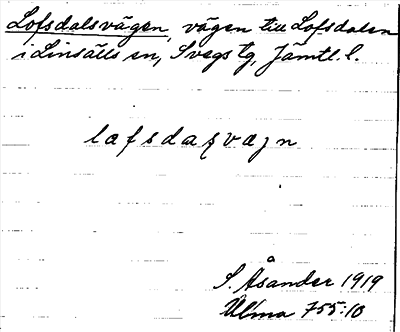 Lofsdalsvägen, vägen till Lofsdalen
i Linsälls sn, Svegs tg, Jämtl. l.
lofsdaʂvæʒn
S. Åsander 1919
Ulma 755:10